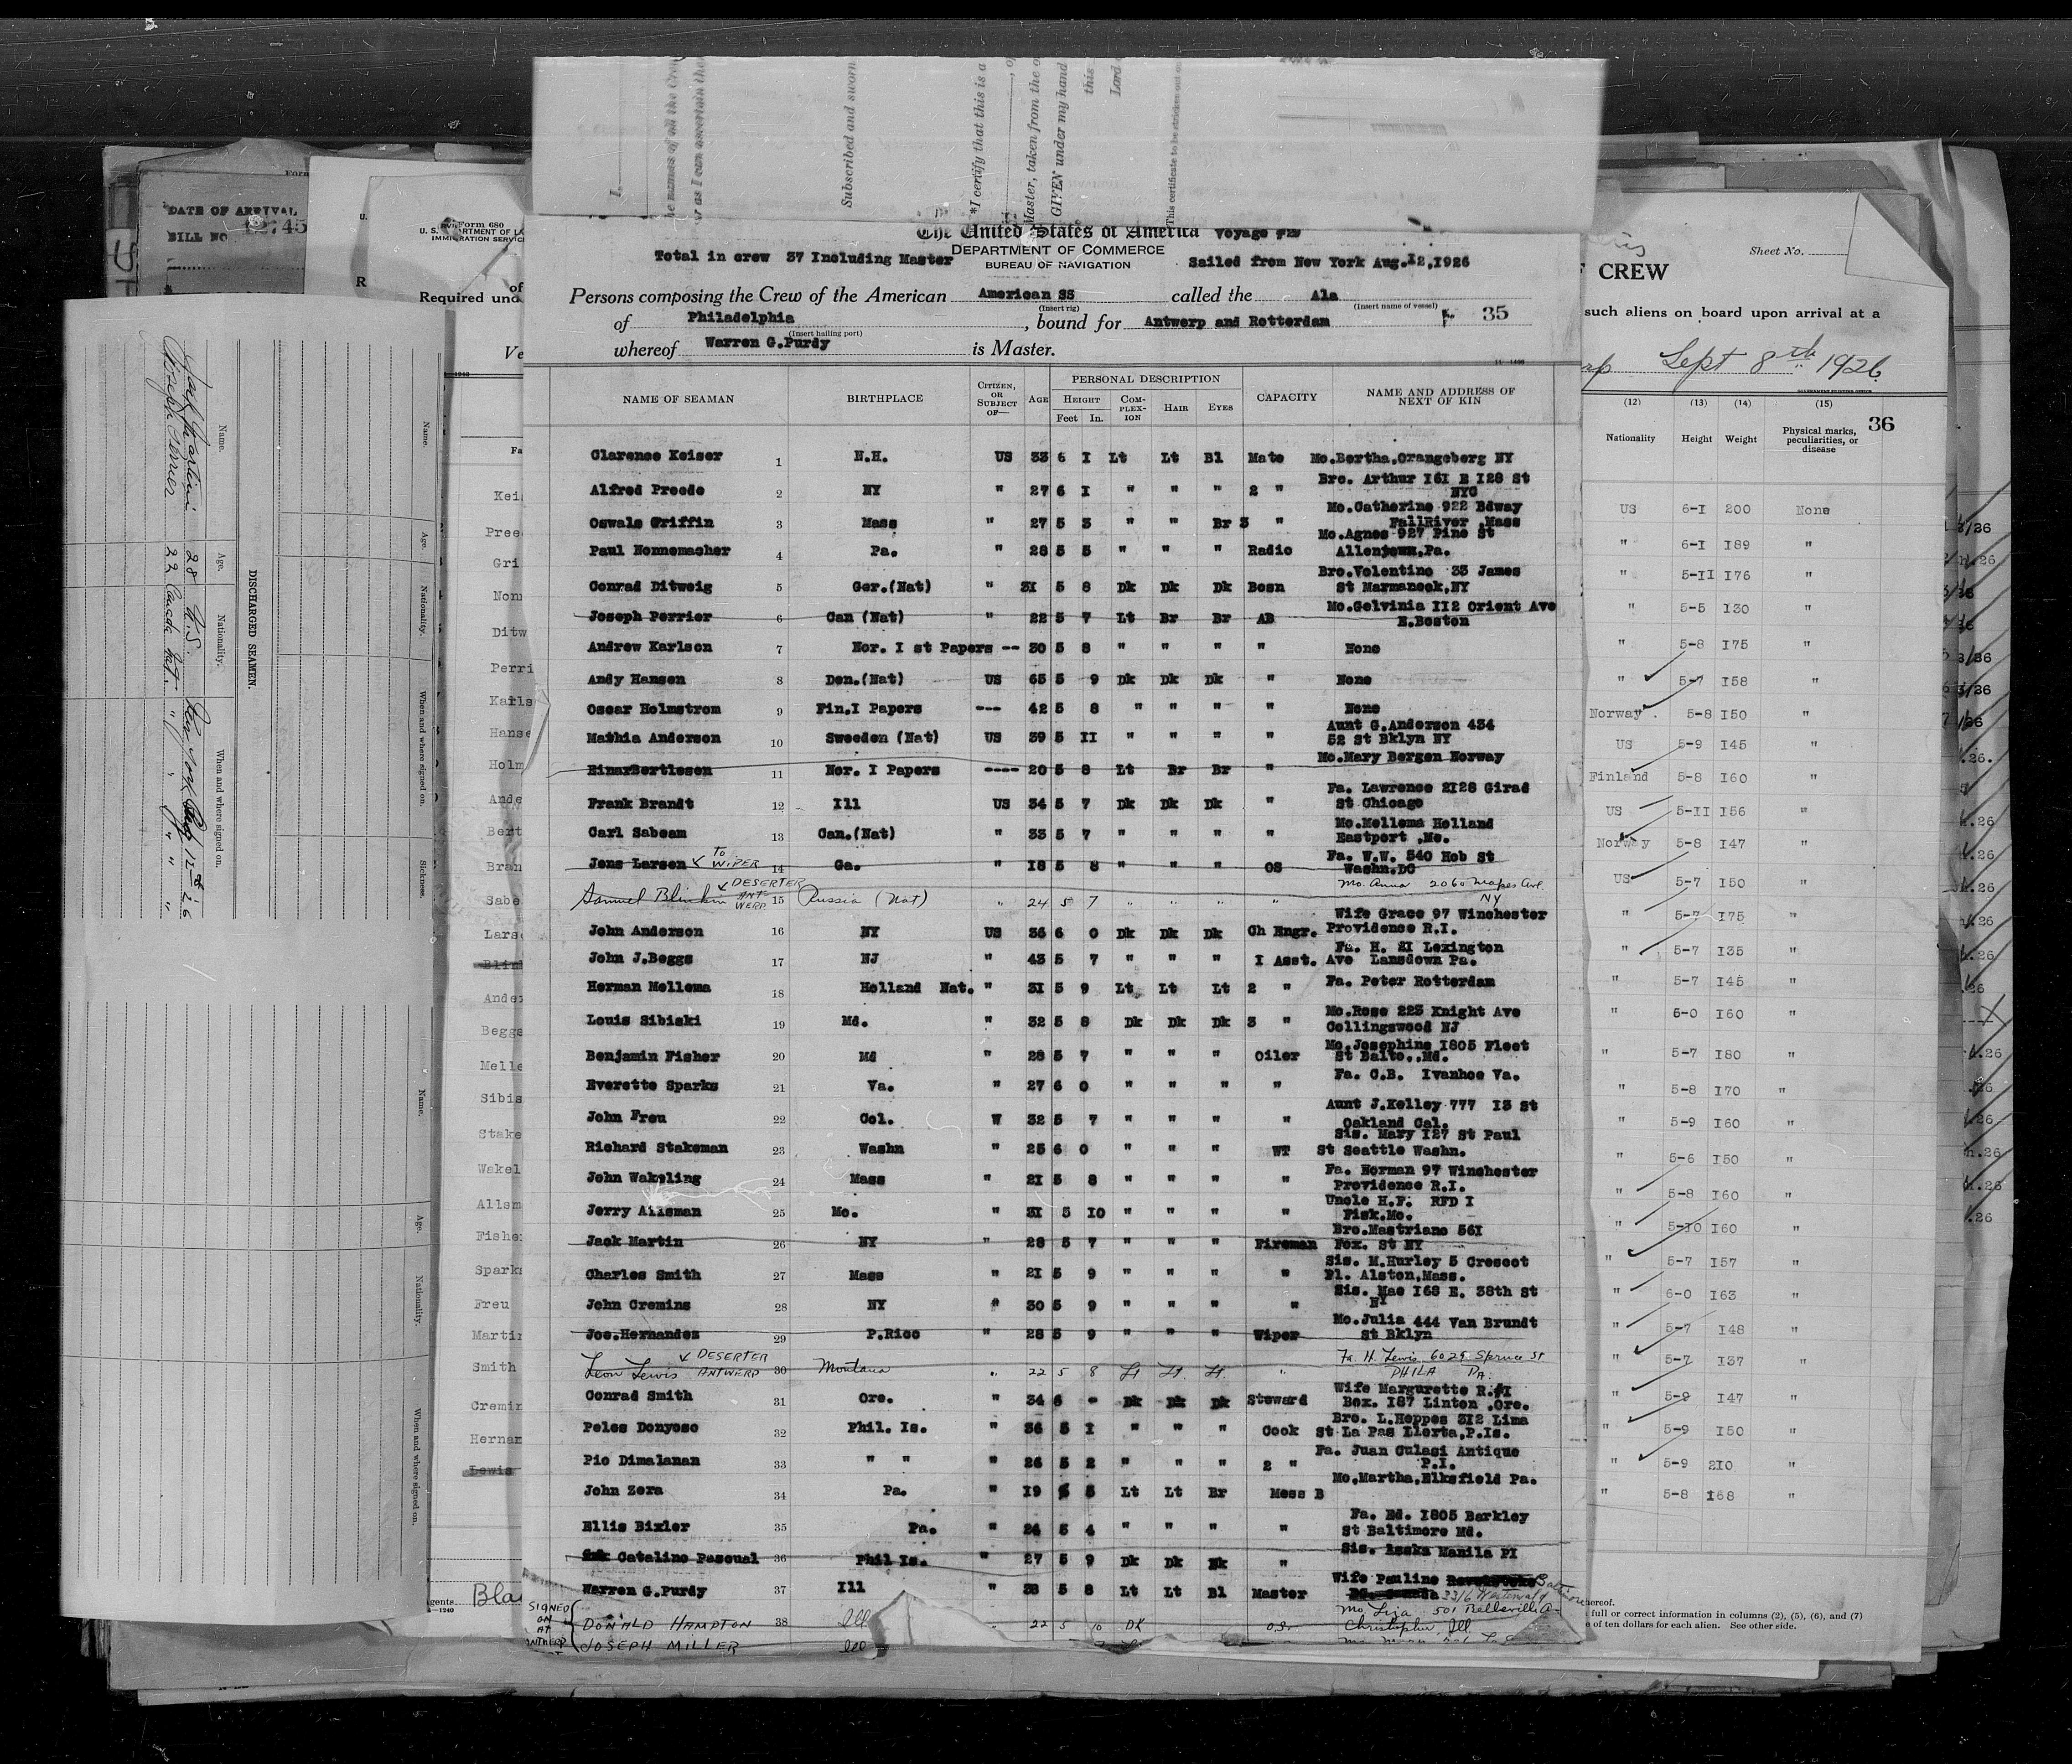 I,
Subscribed and sworn
*I certify that this is a
Master, taken from the
GIVEN under my hand
this
This certificate to be stricken out
The United States of America Voyage
DEPARTMENT OF COMMERCE
Total in crew 37 Including Master
BUREAU OF NAVIGATION
Sailed from New York Aug.I2,I926
Persons composing the Crew of the American American SS called the Ala
(Insert rig) (Insert name of vessel)
of Philadelphia, bound for Antwerp and Rotterdam 35
(Insert hailing port)
whereof Warren G.Purdy is Master.
NAME OF SEAMAN BIRTHPLACE CITIZEN, OR SUBJECT OF— AGE PERSONAL DESCRIPTION CAPACITY NAME AND ADDRESS OF NEXT OF KIN
HEIGHT COMPLEXION HAIR EYES
Feet In.
Clarence Keiser 1 N.H. US 33 6 I Lt Lt Bl Mate Mo.Bertha,Orangeberg NY
Alfred Preede 2 NY " 27 6 I " " " 2 " Bro. Arthur I6I E I28 St NYC
Oswals Griffin 3 Mass " 27 5 3 " " Br 3 " Mo.Catherine 922 Bdway FallRiver ,Mass
Paul Nonnemacher 4 Pa. " 28 5 5 " " " Radio Mo.Agnes 927 Pine St Allentown,Pa.
Conrad Ditweig 5 Ger.(Nat) " 3I 5 8 Dk Dk Dk Bosn Bro.Volentine 33 James St Marmaneck,NY
Joseph Perrier 6 Can (Nat) " 22 5 7 Lt Br Br AB Mo.Gelvinia II2 Orient Ave E.Boston
Andrew Karlson 7 Nor. I st Papers -- 30 5 8 " " " " None
Andy Hansen 8 Den.(Nat) US 65 5 9 Dk Dk Dk " None
Oscar Holmstrom 9 Fin.I Papers --- 42 5 8 " " " " None
Mathia Anderson 10 Sweeden (Nat) US 39 5 II " " " " Aunt G.Anderson 434 52 St Bklyn NY
EinarBertlesen 11 Nor. I Papers ---- 20 5 8 Lt Br Br " Mo.Mary Bergen Norway
Frank Brandt 12 Ill US 34 5 7 Dk Dk Dk " Fa. Lawrence 2I28 Girad St Chicago
Carl Sabeam 13 Can.(Nat) " 33 5 7 " " " " Mo.Mellema Holland Eastport ,Me.
Jens Larsen TO WIPER 14 Ga. " I8 5 8 " " " OS Fa. W.W. 540 Hob St Washn.DC
Samuel Blinkin DESERTER ANTWERP 15 Russia (Nat) " 24 5 7 " " " " Mo. Anna 2060 Mapes Ave. NY
John Anderson 16 NY US 36 6 0 Dk Dk Dk Ch Engr. Wife Grace 97 Winchester Providence R.I.
John J.Beggs 17 NJ " 43 5 7 " " " I Asst. Fa. H. 2I Lexington Ave Lansdown Pa.
Herman Mellema 18 Holland Nat. " 3I 5 9 Lt Lt Lt 2 " Fa. Peter Rotterdam
Louis Sibiski 19 Md. " 32 5 8 Dk Dk Dk 3 " Mo.Rose 223 Knight Ave Collingswood NJ
Benjamin Fisher 20 Md " 28 5 7 " " " Oiler Mo.Josephine I805 Fleet St Balto..Md.
Everette Sparks 21 Va. " 27 6 0 " " " " Fa. C.B. Ivanhoe Va.
John Freu 22 Col. W 32 5 7 " " " " Aunt J.Kelley 777 I3 St Oakland Cal.
Richard Stakeman 23 Washn " 25 6 0 " " " WT Sis. Mary I27 St Paul St Seattle Washn.
John Wakeling 24 Mass " 2I 5 8 " " " " Fa. Norman 97 Winchester Providence R.I.
Jerry Allsman 25 Mo. " 3I 5 I0 " " " " Uncle H.F. RFD I Fisk.Mo.
Jack Martin 26 NY " 28 5 7 " " " Fireman Bro.Mastriano 56I Fox. St NY
Charles Smith 27 Mass " 2I 5 9 " " " " Sis. M.Hurley 5 Crescot Pl. Alston,Mass.
John Cremins 28 NY " 30 5 9 " " " " Sis. Mae I68 E. 38th St NY
Joe.Hernandez 29 P.Rico " 28 5 9 " " " Wiper Mo.Julia 444 Van Brundt St Bklyn
Leon Lewis DESERTER ANTWERP 30 Montana " 22 5 8 Lt Lt. Lt. " Fa. H. Lewis 6029 Spruce St PHILA PA.
Conrad Smith 31 Ore. " 34 6 - Dk Dk Dk Steward Wife Margurette R.#I Box. I87 Linton .Ore.
Peles Donyoso 32 Phil. Is. " 36 5 I " " " Cook Bro. L.Hoppes 3I2 Lima St La Pas Llorta,P.Is.
Pio Dimalanan 33 " " " 26 5 2 " " " 2 " Fa. Juan Culasi Antique P.I.
John Zera 34 Pa. " I9 5 5 Lt Lt Br Mess B Mo.Martha,Elksfield Pa.
Ellis Bixler 35 Pa. " 24 5 4 " " " " Fa. Ed. I805 Barkley St Baltimore Md.
Cataline Pascual 36 Phil Is. " 27 5 9 Dk Dk Bk " Sis. Manila PI
Warren G.Purdy 37 Ill " 38 5 8 Lt Lt Bl Master Wife Pauline
SIGNED ON AT DONALD HAMPTON 38 Ill " 22 5 10 DK O.S. Mo. Liza 501 Belleville Christopher, Ill
JOSEPH MILLER Ill
DATE OF ARRIVAL
BILL NO
Form 680
U. S. DEPARTMENT OF
IMMIGRATION SERVICE
Required
DISCHARGED SEAMEN.
Name. Age. Nationality. When and where signed on. Sickness.
Jack Martin 28 U.S. New York Aug 12th '26
Joseph Perrier 22 Canada Nat. " " "
Name. Age. Nationality. When and where signed on.
Sheet No.
CREW
such aliens on board upon arrival at a
Sept 8th 1926
36
(12) (13) (14) (15)
Nationality Height Weight Physical marks, peculiarities, or disease
US 6-I 200 None
" 6-I I89 "
" 5-II I76 "
" 5-5 I30 "
" 5-8 I75 "
" 5-7 I58 "
Norway 5-8 I50 "
US 5-9 I45 "
Finland 5-8 I60 "
US 5-II I56 "
Norway 5-8 I47 "
US 5-7 I50 "
" 5-7 I75 "
" 5-7 I35 "
" 5-7 I45 "
" 6-0 I60 "
" 5-7 I80 "
" 5-8 I70 "
" 5-9 I60 "
" 5-6 I50 "
" 5-8 I60 "
" 5-I0 I60 "
" 5-7 I57 "
" 6-0 I63 "
" 5-7 I48 "
" 5-7 I37 "
" 5-9 I47 "
" 5-9 I50 "
" 5-9 2I0 "
" 5-8 I68 "
full or correct information in columns (2), (5), (6), and (7)
of ten dollars for each alien. See other side.